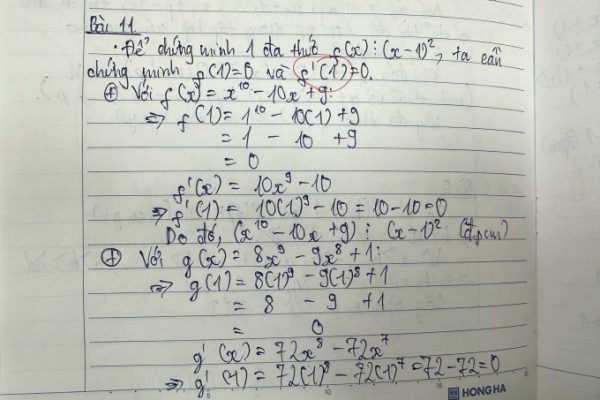 Bài 11
• Để chứng minh 1 đa thức f(x) ⋮ (x-1)², ta cần
chứng minh f(1)=0 và f'(1)=0.
⊕ Với f(x) = x¹⁰ - 10x + 9:
⇒ f(1) = 1¹⁰ - 10(1) + 9
= 1 - 10 + 9
= 0
f'(x) = 10x⁹ - 10
⇒ f'(1) = 10(1)⁹ - 10 = 10 - 10 = 0
Do đó, (x¹⁰ - 10x + 9) ⋮ (x-1)² (đpcm)
⊕ Với g(x) = 8x⁹ - 9x⁸ + 1:
⇒ g(1) = 8(1)⁹ - 9(1)⁸ + 1
= 8 - 9 + 1
= 0
g'(x) = 72x⁸ - 72x⁷
⇒ g'(1) = 72(1)⁸ - 72(1)⁷ = 72 - 72 = 0
5 10 15 20
HONG HA